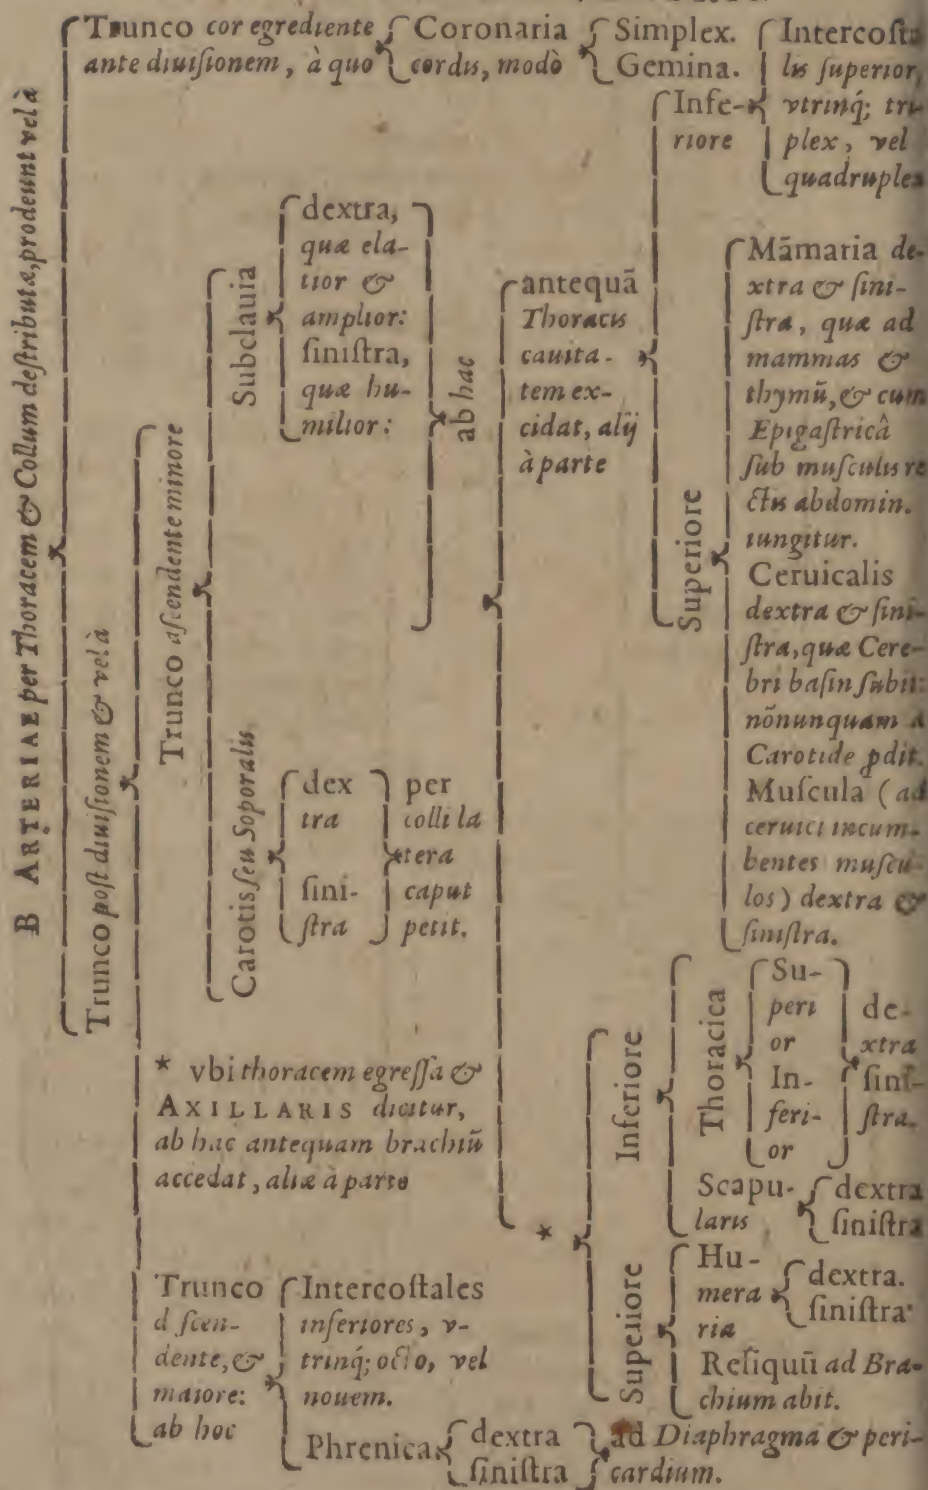 B ARTERIAE per Thoracem & Collum deſtributæ, prodeunt vel à
Trunco cor egrediente
ante diuiſionem, à quo
Coronaria
cordis, modò
Simplex.
Gemina.
Trunco poſt diuiſionem & vel à
Trunco aſcendente minore
Subclauia
dextra,
quæ ela-
tior &
amplior:
ſiniſtra,
quæ hu-
milior:
ab hac
antequã
Thoracis
cauita-
tem ex-
cidat, alij
à parte
Infe-
riore
Intercoſta
lis ſuperior,
vtrinq́; tri-
plex, vel
quadruplex
Superiore
Mãmaria de-
xtra & ſini-
ſtra, quæ ad
mammas &
thymũ, & cum
Epigaſtricâ
ſub muſculis re
ctis abdomin.
iungitur.
Ceruicalis
dextra & ſini-
ſtra, quæ Cere-
bri baſin ſubit:
nõnunquam à
Carotide pdit.
Muſcula (ad
ceruici incum-
bentes muſcu-
los) dextra &
ſiniſtra.
* vbi thoracem egreſſa &
AXILLARIS dicitur,
ab hac antequam brachiũ
accedat, aliæ à parte
*
Inferiore
Thoracica
Su-
peri
or
In-
feri-
or
de-
xtra
ſini-
ſtra.
Scapu-
laris
dextra
ſiniſtra
Superiore
Hu-
mera
ria
dextra.
ſiniſtra
Reliquũ ad Bra-
chium abit.
Carotis ſeu Soporalis
dex
tra
ſini-
ſtra
per
colli la
tera
caput
petit.
Trunco
d ſcen-
dente, &
maiore:
ab hoc
Intercoſtales
inferiores, v-
trinq́; octo, vel
nouem.
Phrenica
dextra
ſiniſtra
ad Diaphragma & peri-
cardium.